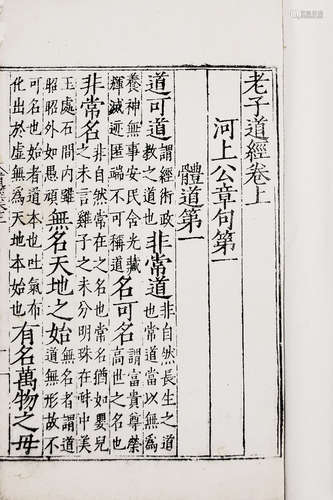 老子道經卷上
河上公章句第一
體道第一
道可道謂經術政教之道也非常道非自然長生之道也常道當以無為
養神無事安民含光藏輝滅迹匿端不可稱道名可名謂富貴尊榮高世之名也
非常名非自然常在之名也常名猶如嬰兒之未言雞子之未分明珠在蚌中美
玉處石間內雖昭昭外如愚頑無名天地之始無名者謂道道無形故不
可名也始者道本也吐氣布化出於虛無為天地本始也有名萬物之母